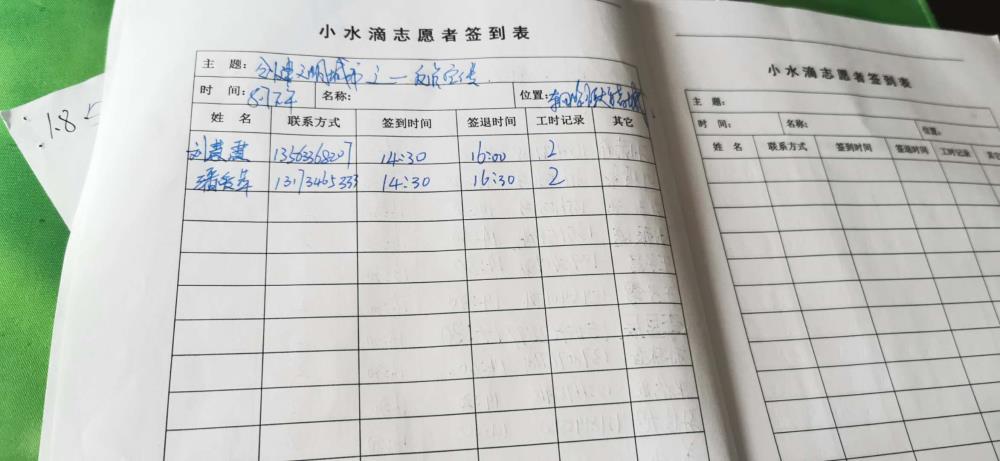 小水滴志愿者签到表
主 题: 创建文明城市之一反诈宣传
时 间: 名称: 位置:
姓 名 联系方式 签到时间 签退时间 工时记录 其它
刘慧慧 13563368207 14:30 16:00 2
13173465333 14:30 16:30 2
1.8
小水滴志愿者签到表
主 题:
时 间: 名称: 位置:
姓 名 联系方式 签到时间 签退时间 工时记录